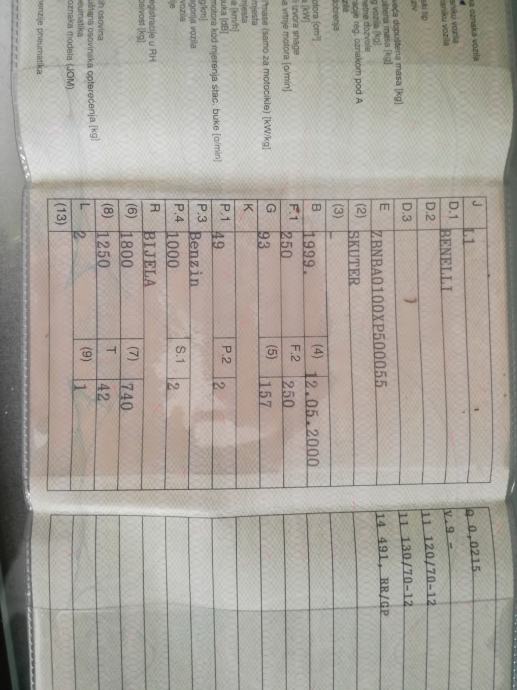 J L1
D.1 BENELLI
D.2
D.3
E ZBNBA0100XP500055
(2) SKUTER
(3) -
B 1999. (4) 12.05.2000
F.1 250 F.2 250
G 93 (5) 157
K
P.1 49 P.2 2
P.3 Benzin
P.4 1000 S.1 2
R BIJELA
(6) 1800 (7) 740
(8) 1250 T 42
L 2 (9) 1
(13)
Q 0,0215
V.9 -
11 120/70-12
11 130/70-12
14 491, RR/GP
oznaka vozila
vozila
vozila
tip
masa [kg]
masa [kg]
vozila [kg]
reg. oznakom pod A
[cm³]
[kW]
snage
vrtnje motora [o/min]
mase (samo za motocikle) [kW/kg]
mjesta
mjesta
[km/h]
[dB]
motora kod mjerenja stac. buke [o/min]
[g/km]
vozila
u RH
[kg]
osovina
osovinska opterećenja [kg]
pneumatika
oznaka modela (JOM)
pneumatika